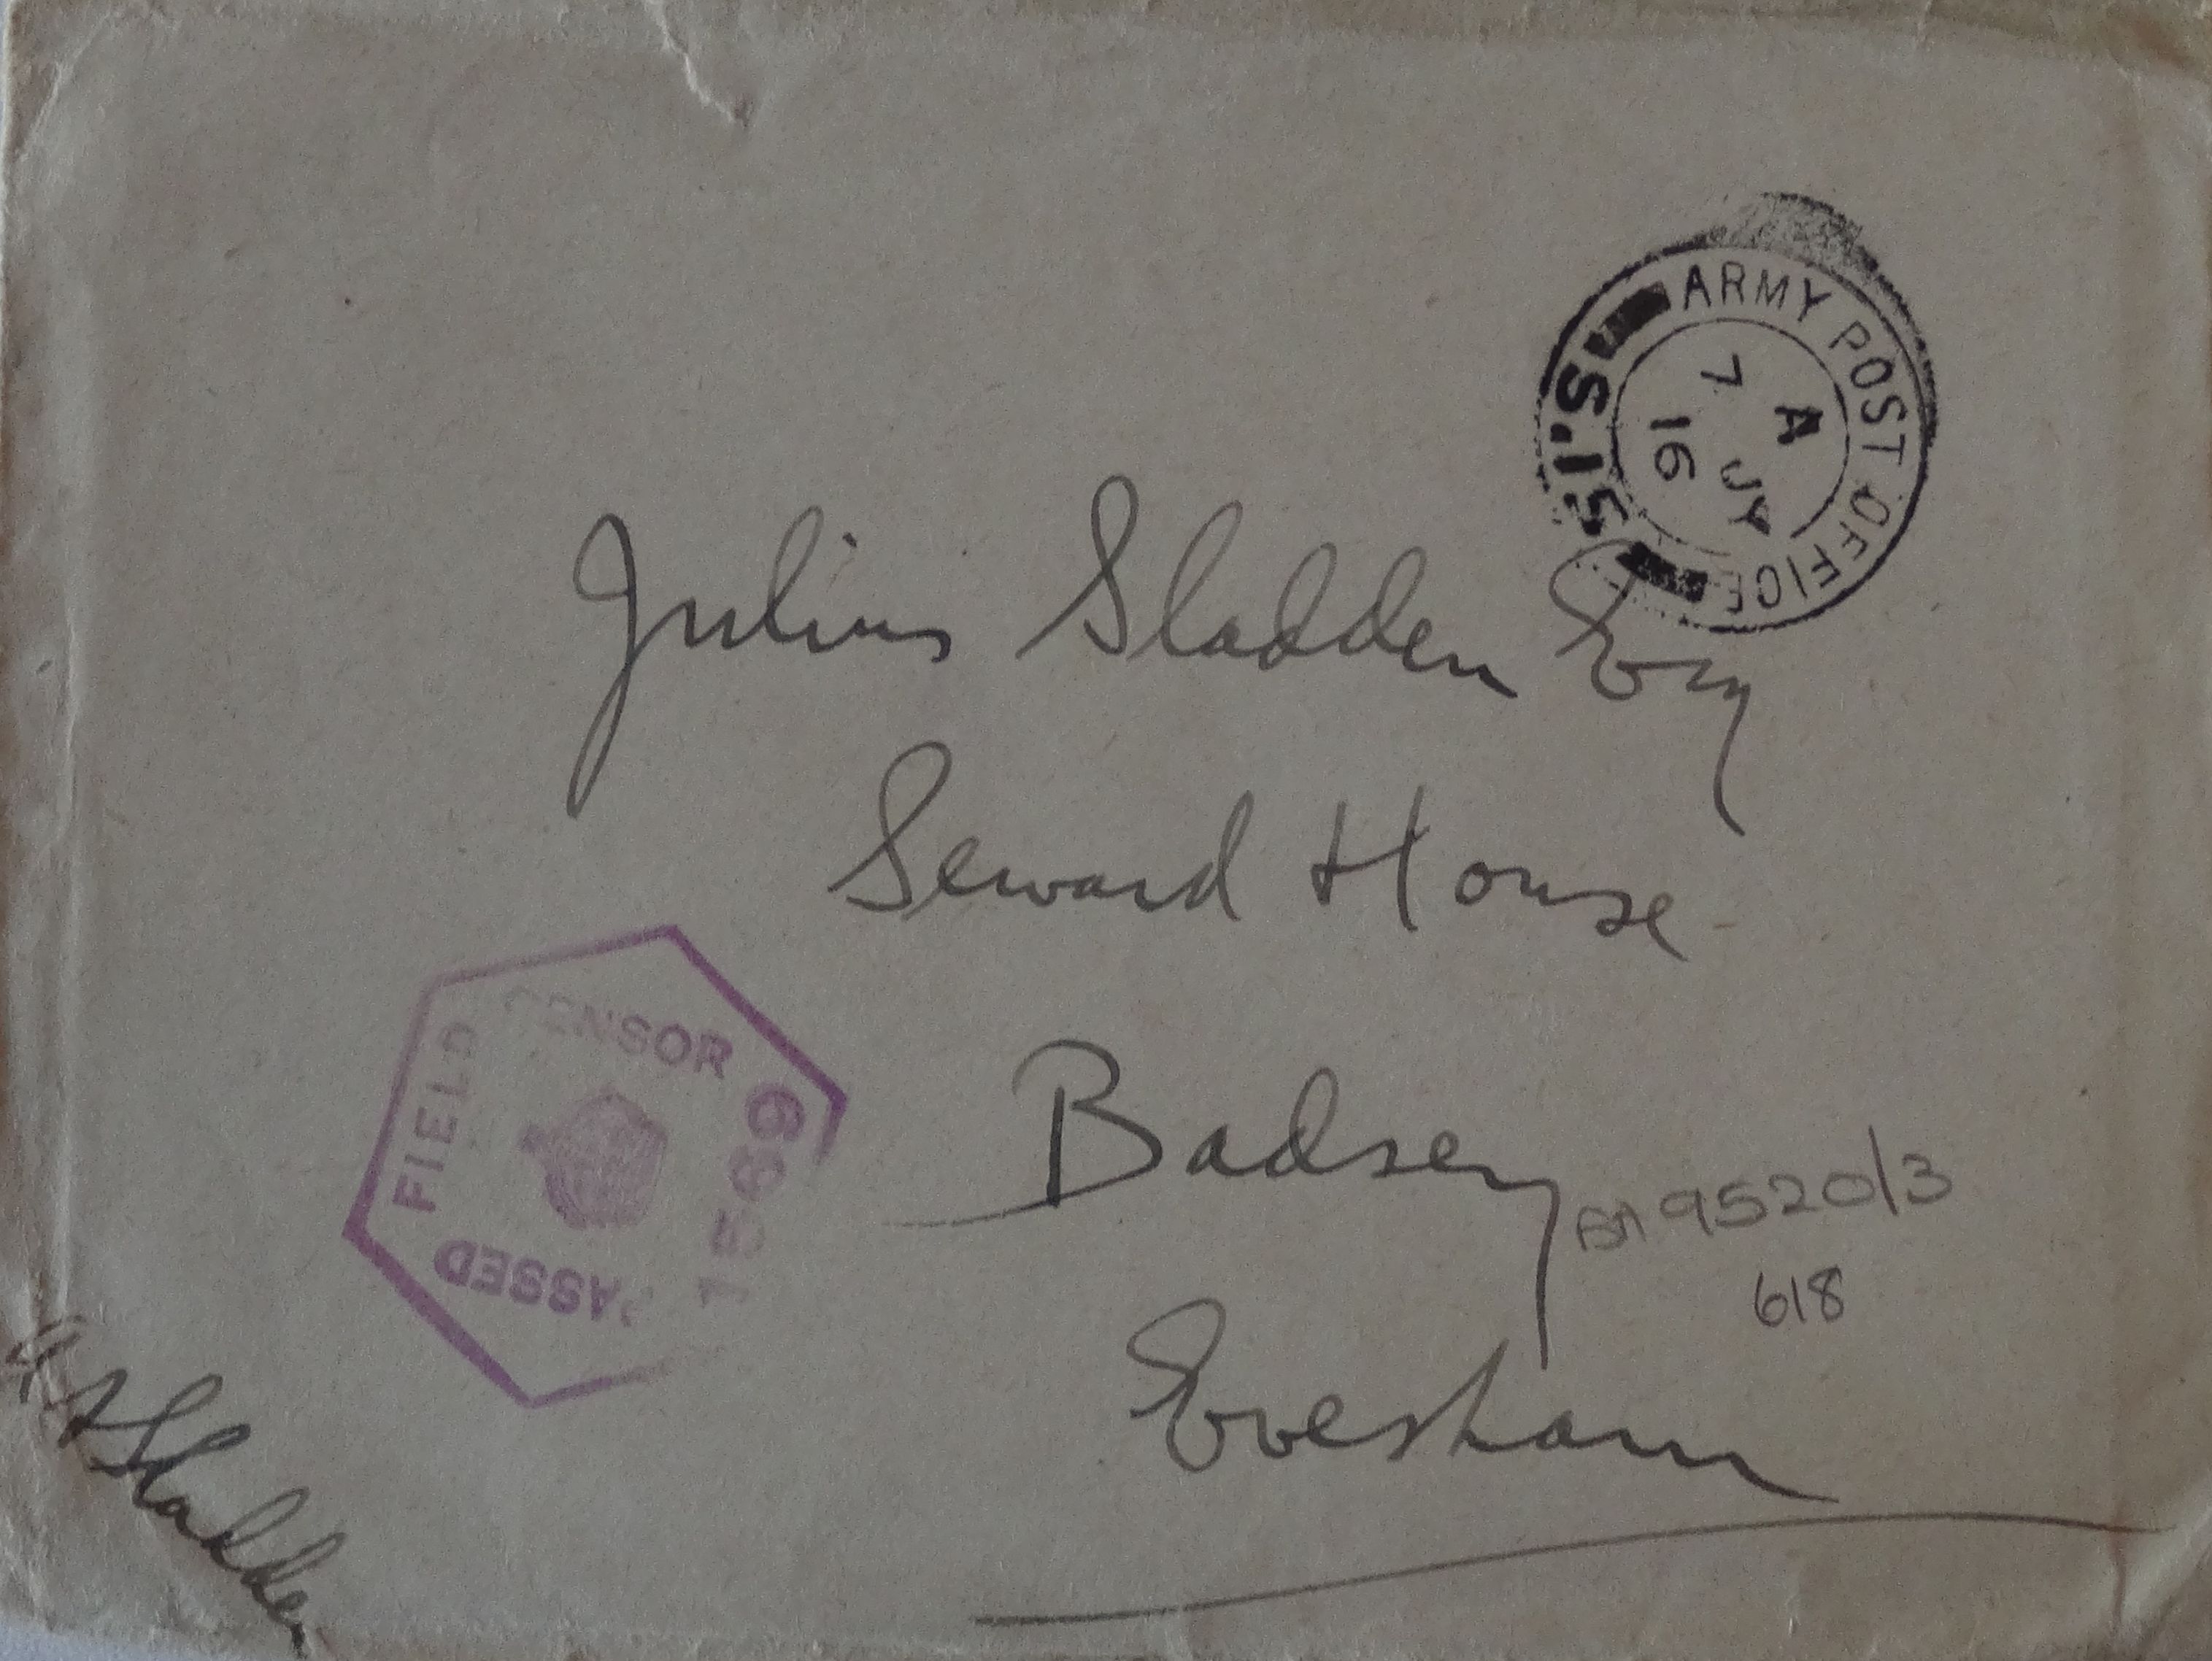 ARMY POST OFFICE
A
7 JY
16
S.15
Julius Sladden Esq
Seward House
Badsey
Evesham
9520/3
618
FIELD CENSOR
1569
PASSED
Sladden